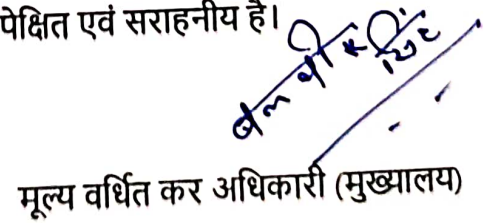 पेक्षित एवं सराहनीय है।
मूल्य वर्धित कर अधिकारी (मुख्यालय)